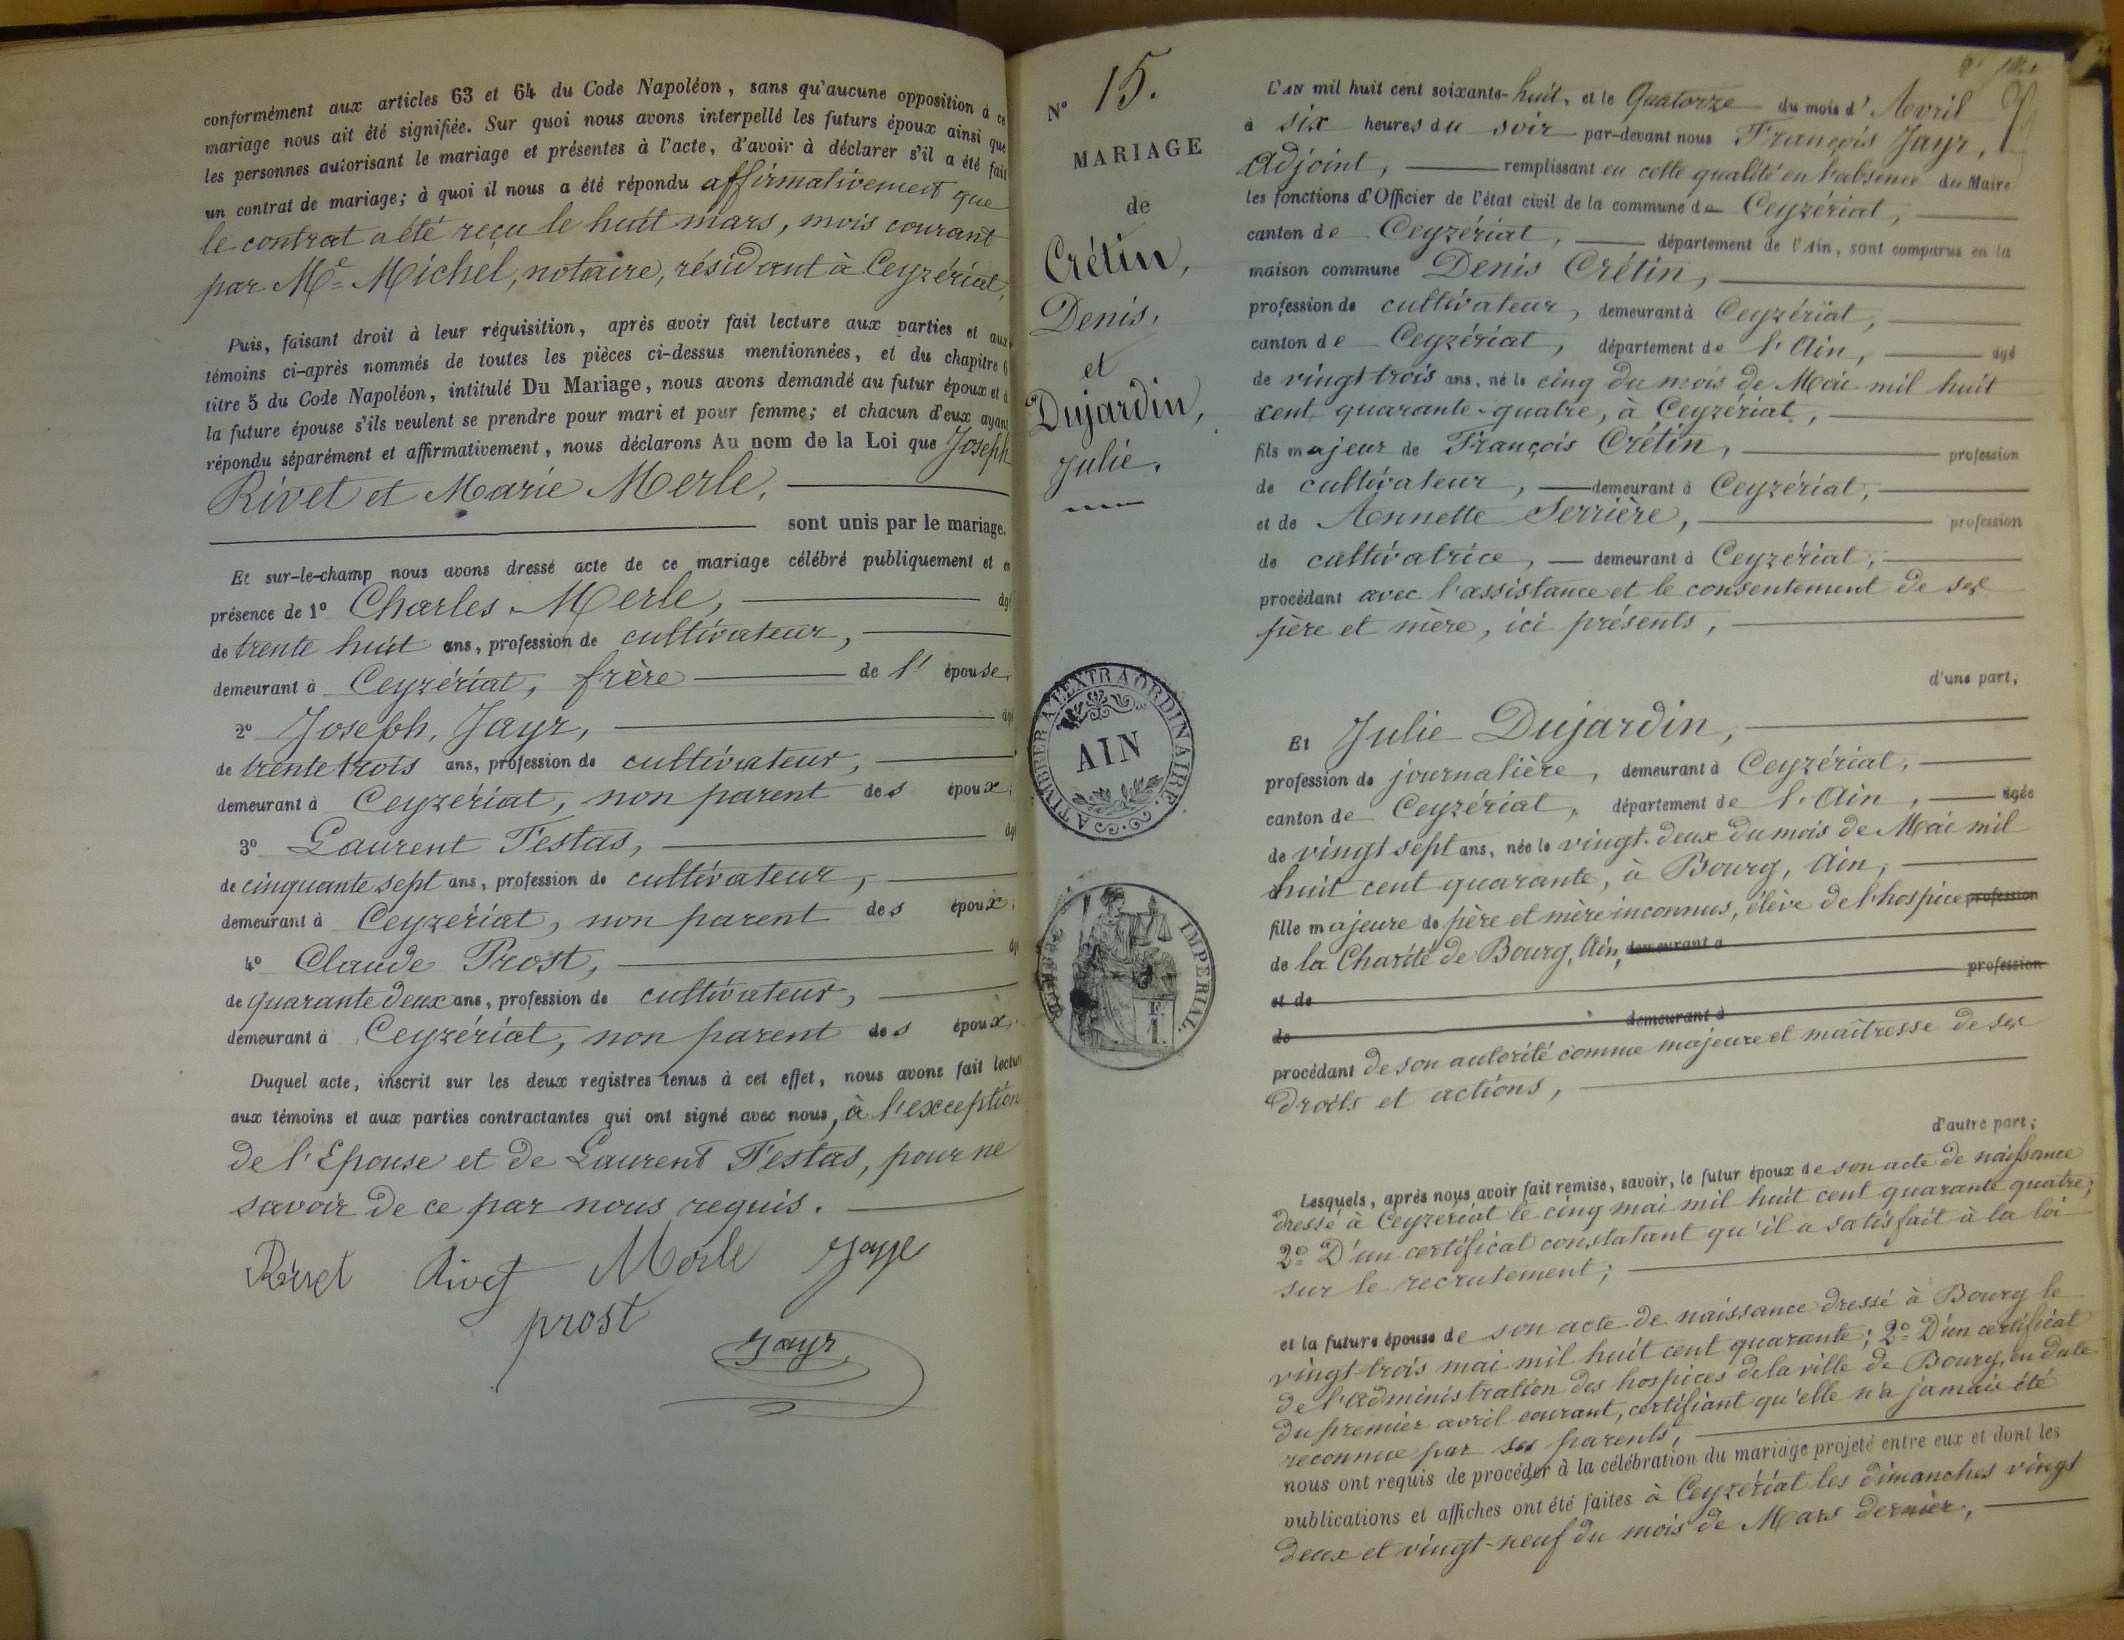 conformément aux articles 63 et 64 du Code Napoléon, sans qu'aucune opposition à ce
mariage nous ait été signifiée. Sur quoi nous avons interpellé les futurs époux ainsi que
les personnes autorisant le mariage et présentes à l'acte, d'avoir à déclarer s'il a été fait
un contrat de mariage; à quoi il nous a été répondu affirmativement que
le contrat a été reçu le huit mars, mois courant
par Me Michel, notaire, résidant à Ceyzériat,
Puis, faisant droit à leur réquisition, après avoir fait lecture aux parties et aux
témoins ci-après nommés de toutes les pièces ci-dessus mentionnées, et du chapitre 6
titre 5 du Code Napoléon, intitulé Du Mariage, nous avons demandé au futur époux et à
la future épouse s'ils veulent se prendre pour mari et pour femme; et chacun d'eux ayant
répondu séparément et affirmativement, nous déclarons Au nom de la Loi que Joseph
Rivet et Marie Merle,
sont unis par le mariage.
Et sur-le-champ nous avons dressé acte de ce mariage célébré publiquement et en
présence de 1º Charles Merle, âgé
de trente huit ans, profession de cultivateur,
demeurant à Ceyzériat, frère de l' épouse,
2º Joseph, Jayr, âgé
de trente trois ans, profession de cultivateur,
demeurant à Ceyzériat, non parent des époux;
3º Laurent Festas, âgé
de cinquante sept ans, profession de cultivateur,
demeurant à Ceyzériat, non parent des époux;
4º Claude Prost, âgé
de quarante deux ans, profession de cultivateur,
demeurant à Ceyzériat, non parent des époux.
Duquel acte, inscrit sur les deux registres tenus à cet effet, nous avons fait lecture
aux témoins et aux parties contractantes qui ont signé avec nous, à l'exception
de l'Epouse et de Laurent Festas, pour ne
savoir de ce par nous requis.
Rivet Rivet Merle Jayr
prost
Jayr
Nº 15.
MARIAGE
de
Crétin,
Denis,
et
Dujardin,
Julie.
A TIMBRER A L'EXTRAORDINAIRE.
AIN
TIMBRE IMPERIAL.
F.
1.
L'AN mil huit cent soixante-huit, et le Quatorze du mois d'Avril
à six heures du soir par-devant nous François Jayr,
Adjoint, remplissant en cette qualité en l'absence du Maire
les fonctions d'Officier de l'état civil de la commune de Ceyzériat,
canton de Ceyzériat, département de l'Ain, sont comparus en la
maison commune Denis Crétin,
profession de cultivateur, demeurant à Ceyzériat,
canton de Ceyzériat, département de l'Ain, âgé
de vingt trois ans, né le cinq du mois de Mai mil huit
cent quarante-quatre, à Ceyzériat,
fils majeur de François Crétin, profession
de cultivateur, demeurant à Ceyzériat,
et de Annette Serrière, profession
de cultivatrice, demeurant à Ceyzériat,
procédant avec l'assistance et le consentement de ses
père et mère, ici présents,
d'une part;
Et Julie Dujardin,
profession de journalière, demeurant à Ceyzériat,
canton de Ceyzériat, département de l'Ain, âgée
de vingt sept ans, née le vingt-deux du mois de Mai mil
huit cent quarante, à Bourg, Ain,
fille majeure de père et mère inconnus, élève de l'hospice profession
de la Charité de Bourg, Ain, demeurant à
et de profession
de demeurant à
procédant de son autorité comme majeure et maîtresse de ses
droits et actions,
d'autre part;
Lesquels, après nous avoir fait remise, savoir, le futur époux de son acte de naissance
dressé à Ceyzériat le cinq mai mil huit cent quarante quatre;
2º D'un certificat constatant qu'il a satisfait à la loi
sur le recrutement;
et la future épouse de son acte de naissance dressé à Bourg le
vingt-trois mai mil huit cent quarante; 2º D'un certificat
de l'administration des hospices de la ville de Bourg, en date
du premier avril courant, certifiant qu'elle n'a jamais été
reconnue par ses parents,
nous ont requis de procéder à la célébration du mariage projeté entre eux et dont les
publications et affiches ont été faites à Ceyzériat les dimanches vingt
deux et vingt-neuf du mois de Mars dernier,